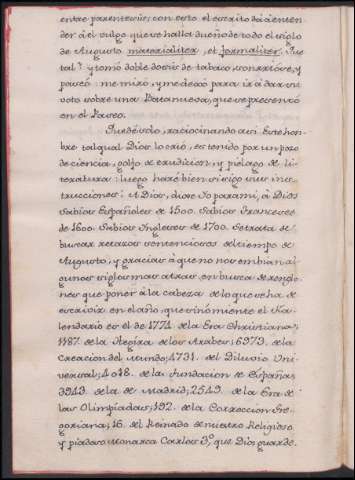 entre parentesis; con esto el escrito da à enten
der à el vulgo que se halla dueño de todo el siglo
de Augusto materialiter, et formaliter. Fue
tal? y tomó doble dosis de tabaco, sonriose, y
paseó: me miró, y me dexó para ir à dar su
voto sobre una Bata nueva, que se presentó
en el Paseo.
Quedé solo, raciocinando asi. Este hom
bre tal qual Dios lo crió, es tenido por un pozo
de ciencia, golfo de erudicion, y pielago de li
teratura: luego haré bien si sigo sus ins
trucciones: A Dios, dixe Yo para mi, à Dios
Sabios Españoles de 1500. Sabios Franceses
de 1600. Sabios Ingleses de 1700. Se trata de
buscar retazos sentenciosos del tiempo de
Augusto, y gracias à que no nos embian al
gunos siglos mas atras, en busca de renglo
nes que poner à la cabeza de lo que se ha de
escrivir en el año, que si no miente el Ka
lendario es el de 1774. de la Era Christiana;
1187. de la Hegira de los Arabes; 6973. de la
Creacion del Mundo; 4731. del Diluvio Uni
versal; 4018. de la fundacion de España;
3943. de la de Madrid; 2549. de la Era de
las Olimpiadas; 192. de la Correccion Gre
goriana; 16. del Reinado de nuestro Religioso
y piadoso Monarca Carlos 3º, que Dios guarde.